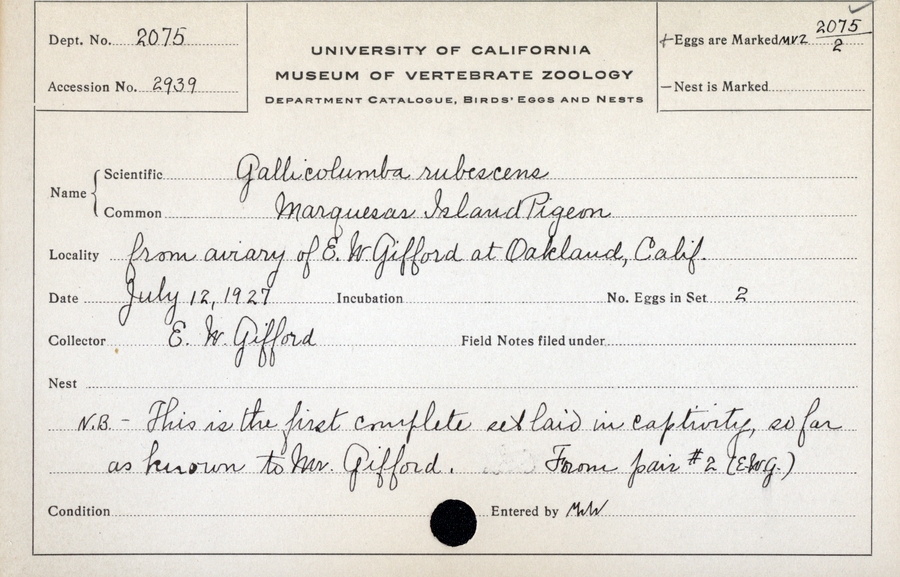 Dept. No. 2075
Accession No. 2939
UNIVERSITY OF CALIFORNIA
MUSEUM OF VERTEBRATE ZOOLOGY
DEPARTMENT CATALOGUE, BIRDS' EGGS AND NESTS
+Eggs are Marked MVZ 2075/2
—Nest is Marked
Name
Scientific Gallicolumba rubescens
Common Marquesas Island Pigeon
Locality from aviary of E. W. Gifford at Oakland, Calif.
Date July 12, 1927 Incubation No. Eggs in Set 2
Collector E. W. Gifford Field Notes filed under
Nest
N.B. - This is the first complete set laid in captivity, so far
as known to Mr. Gifford. From pair #2 (E.W.G.)
Condition Entered by